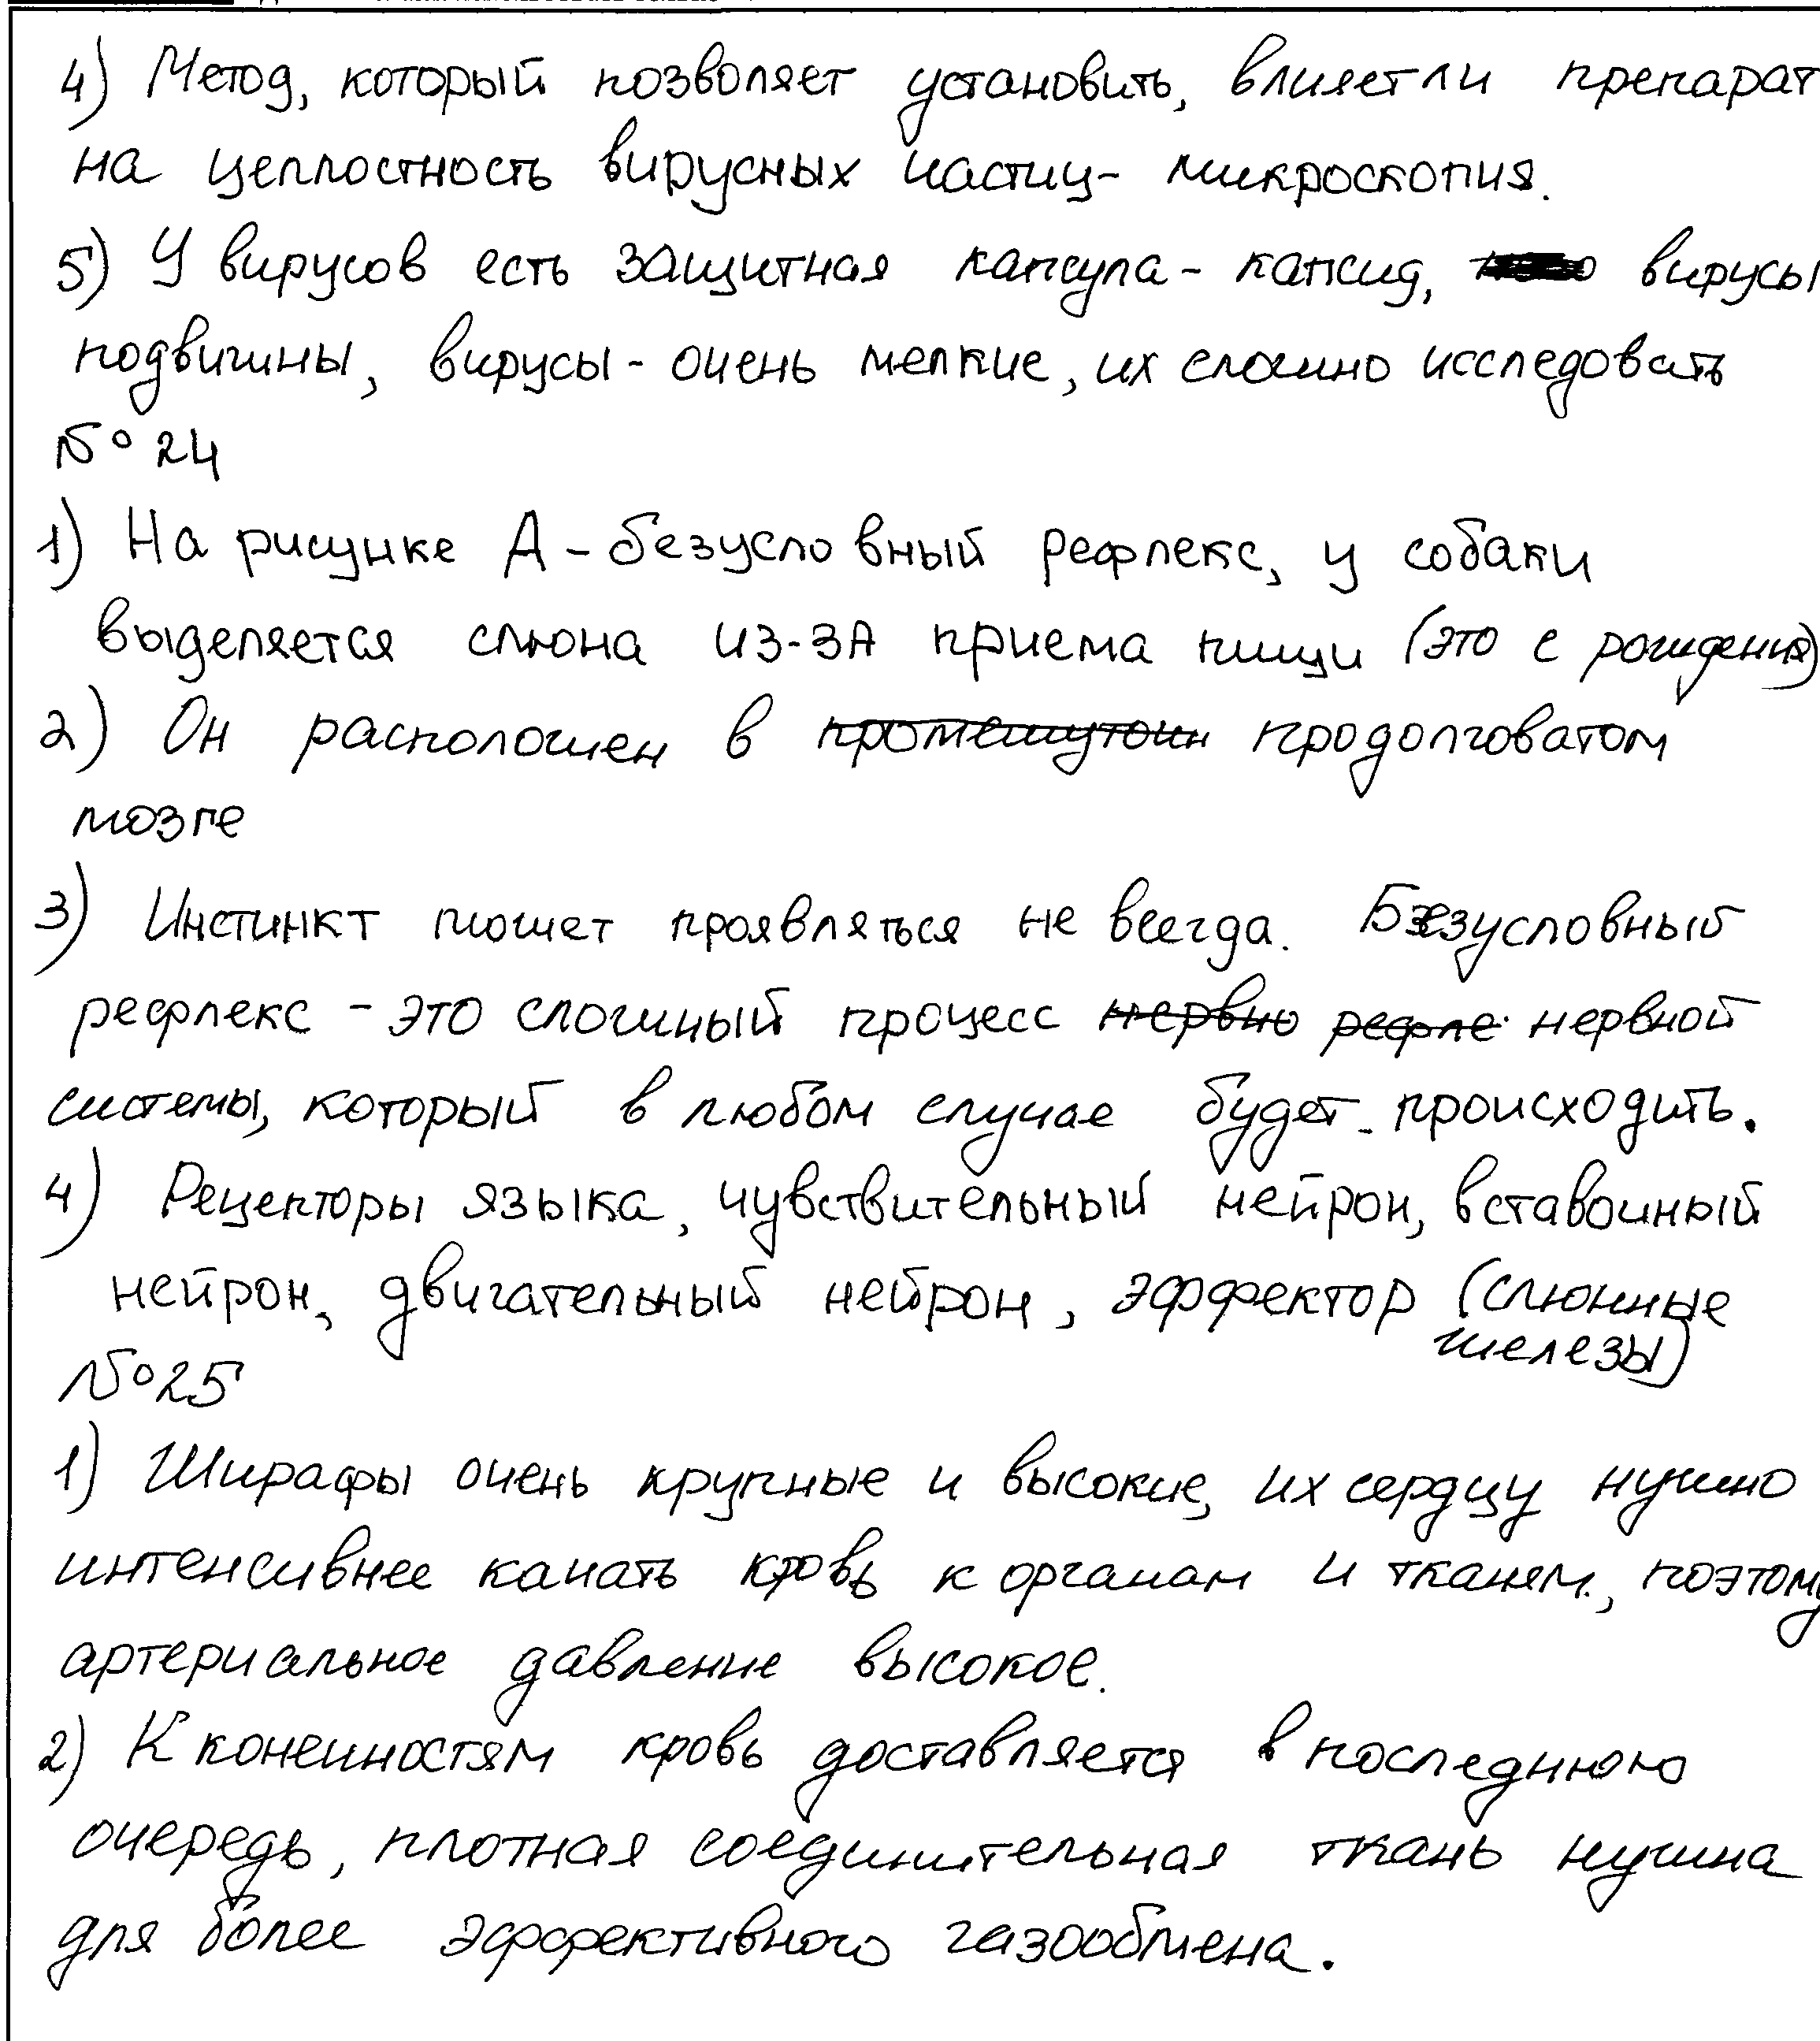 4) Метод, который позволяет установить, влияет ли препарат
на целлостность вирусных частиц- микроскопия.
5) У вирусов есть защитная капсула - капсид, вирусы
подвижны, вирусы - очень мелкие, их сложно исследовать
№ 24
1) На рисунке А - безусловный рефлекс, у собаки
выделяется слюна из-за приема пищи (это с рождения)
2) Он расположен в промежуточн продолговатом
мозге
3) Инстинкт может проявляться не всегда. Безусловный
рефлекс - это сложный процесс нервно рефле нервной
системы, который в любом случае будет происходить.
4) Рецепторы языка, чувствительный нейрон, вставочный
нейрон, двигательный нейрон, эффектор (слюнные
железы)
№ 25
1) Жирафы очень крупные и высокие, их сердцу нужно
интенсивнее качать кровь к органам и тканям, поэтому
артериальное давление высокое.
2) К конечностям кровь доставляется в последнюю
очередь, плотная соединительная ткань нужна
для более эффективного газообмена.